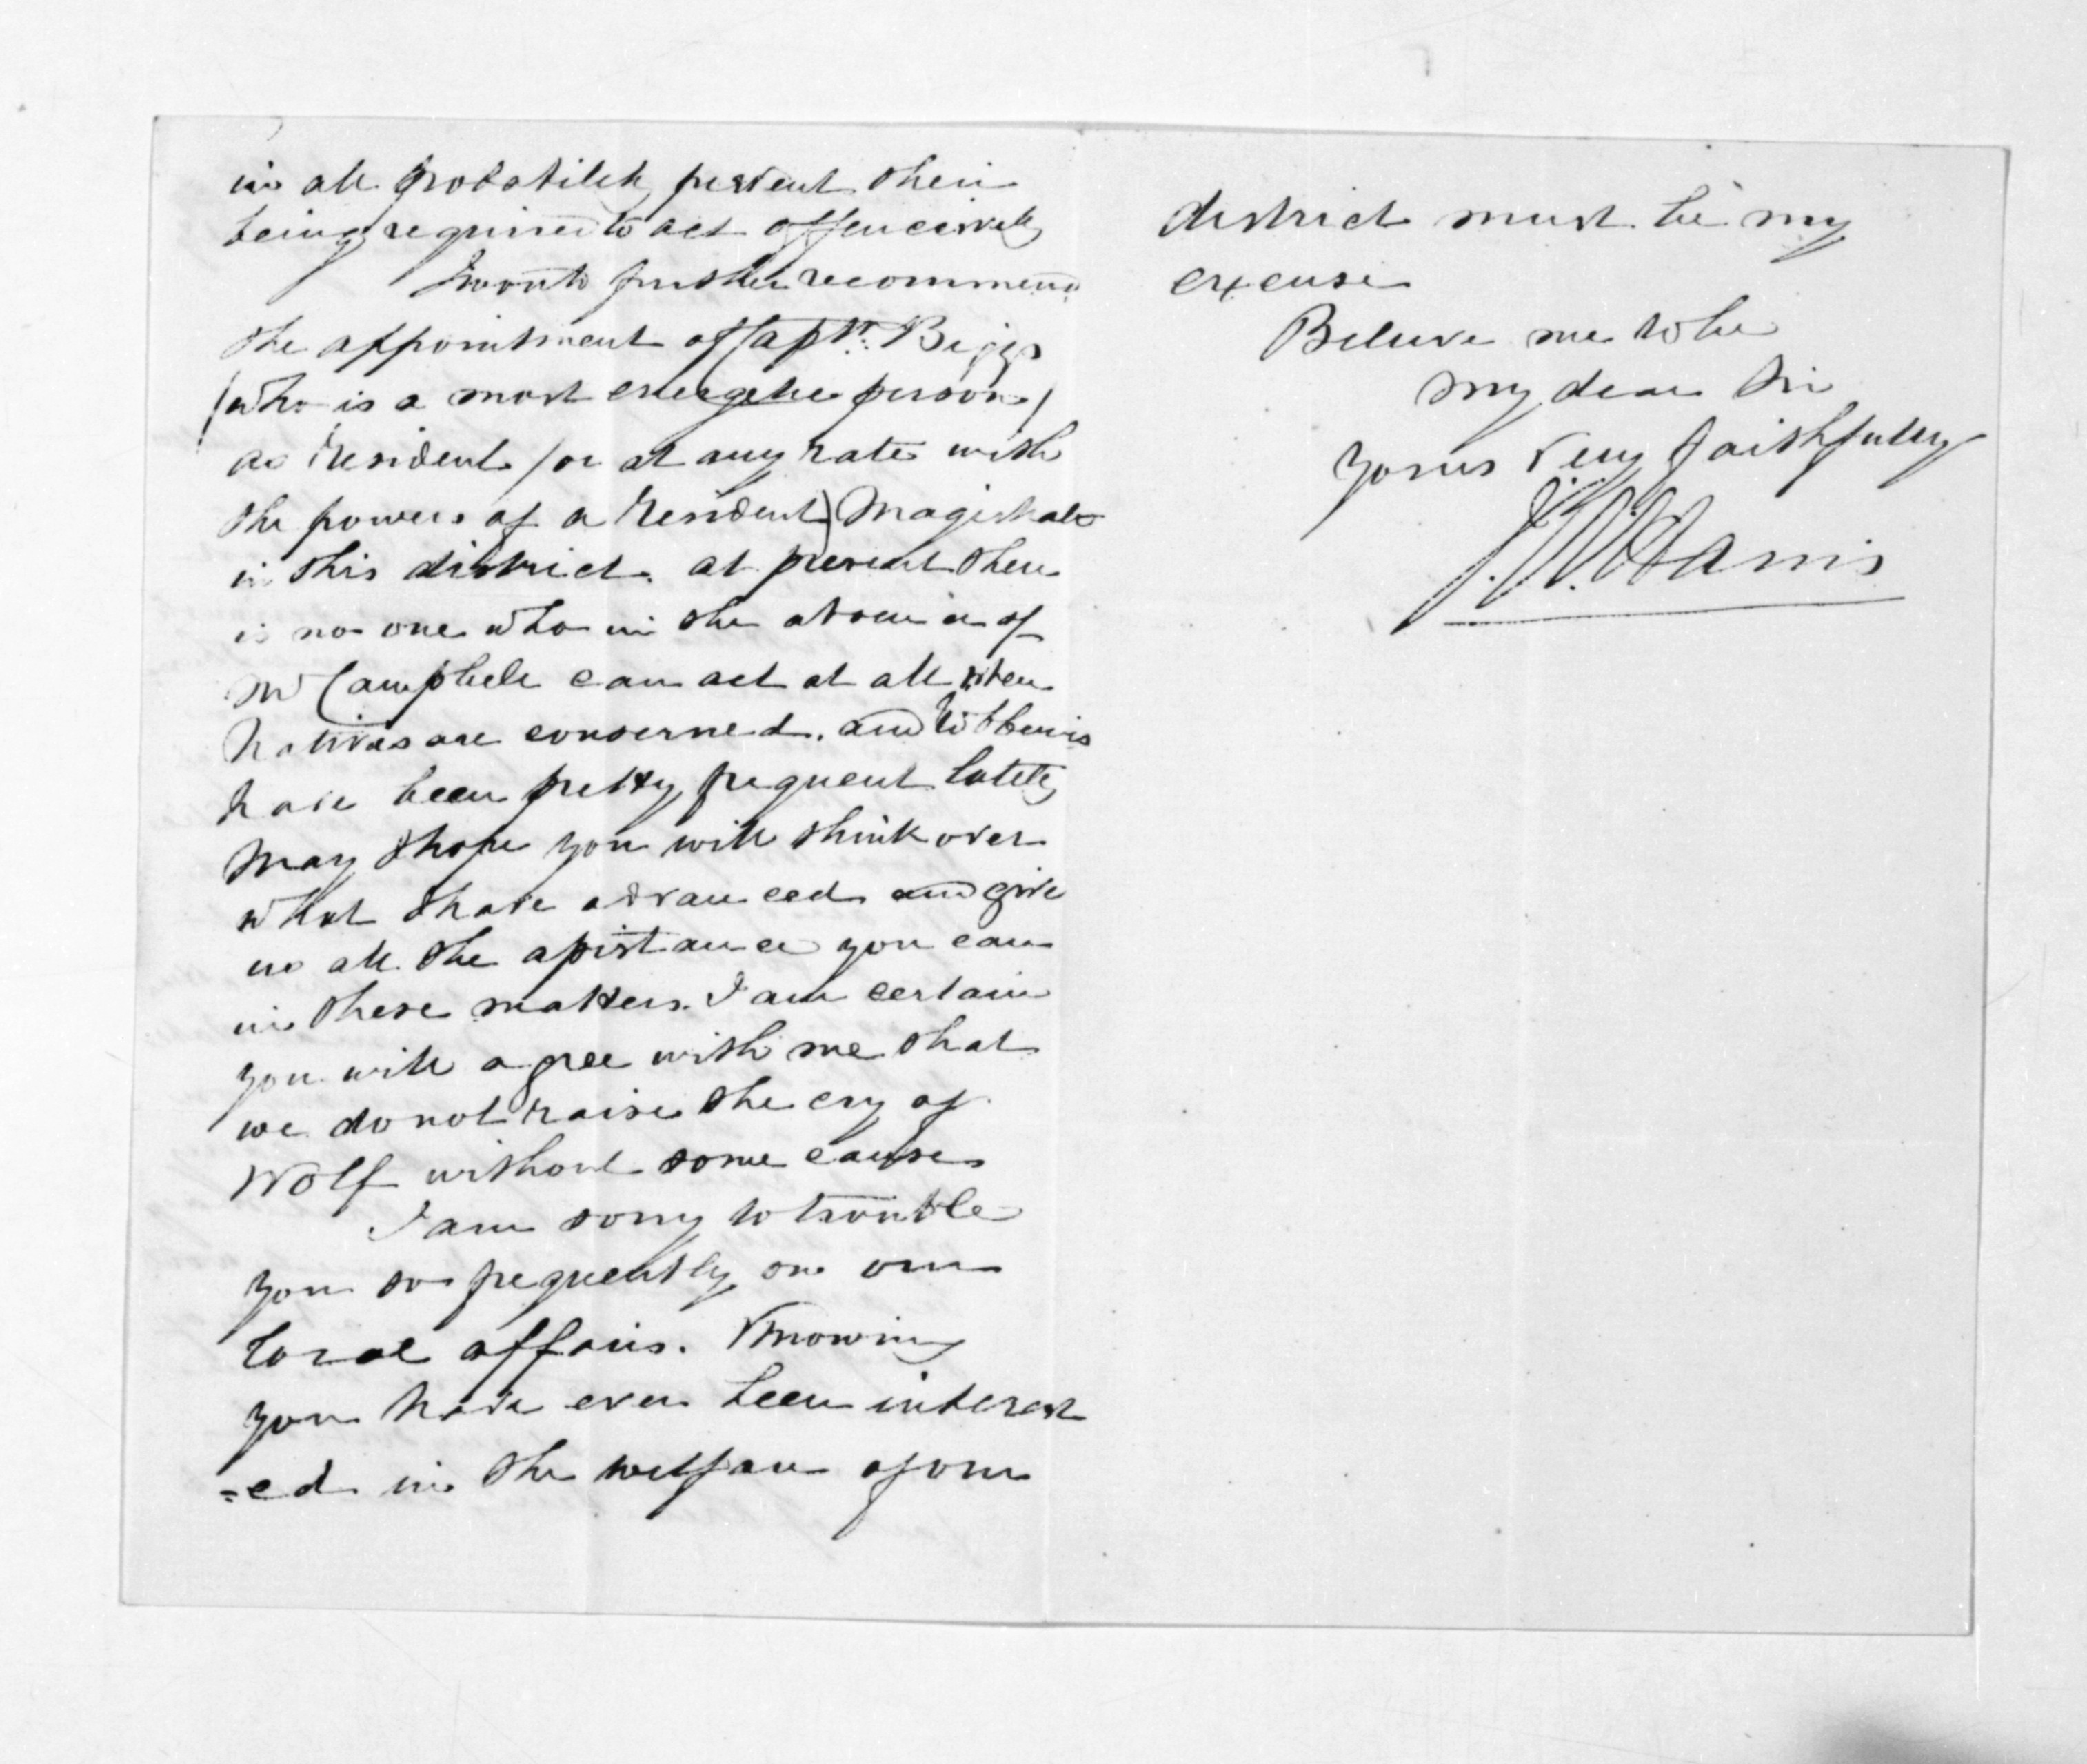 in all probability prevent their
being required to act offencively
I would further recommend
the appointment of Captn. Biggs
(who is a most energetic person)
as Resident (or at any rate with
the powers of a Resident) Magistrate
in this district. at present there
is no one who in the absence of
Mr Campbell can act at all when
Natives are concerned. and robberies
have been pretty frequent lately
May I hope you will think over
what I have advanced and give
us all the assistance you can
in these matters. I am certain
you will agree with me that
we do not raise the cry of
Wolf without some cause
I am sorry to trouble
you so frequently on our
local affairs. Knowing
you have ever been interest
=ed in the welfare of our
district must be my
excuse
Believe me to be
My dear Sir
Yours very faithfully
J.W. Harris